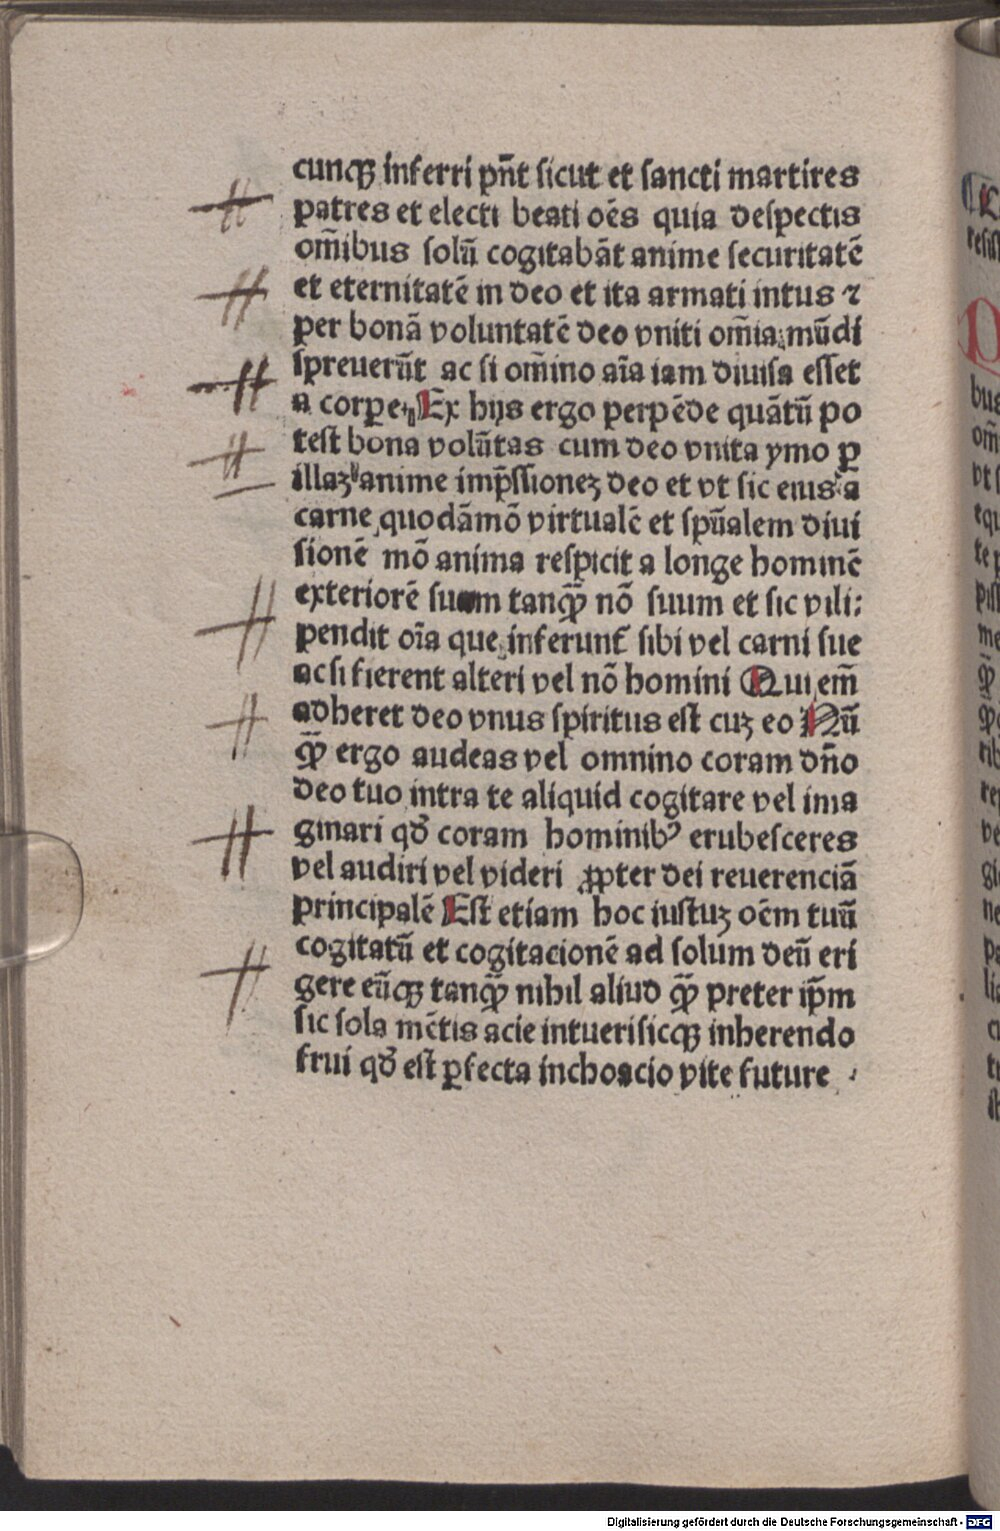 cunqꝫ inferri pn̄t sicut et sancti martires
patres et electi beati oēs quia despectis
om̄ibus solū cogitabāt anime securitatē
et eternitatē in deo et ita armati intus ⁊
per bonā voluntatē deo vniti om̄ia mūdi
spreuerūt ac si om̄ino aīa iam diuisa esset
a corpe Ex hijs ergo perpēde quātū po
test bona volūtas cum deo vnita ymo ꝑ
illaꝫ anime imp̄ssionez deo et vt sic eius a
carne quodāmō virtualē et spūalem diui
sionē mō anima respicit a longe hominē
exteriorē suum tanqꝫ̄ nō suum et sic vili:
pendit oīa que inferunt᷑ sibi vel carni sue
ac si fierent alteri vel nō homini Qui em̄
adheret deo vnus spiritus est cuꝫ eo Nū
qꝫ̄ ergo audeas vel omnino coram dn̄o
deo tuo intra te aliquid cogitare vel ima
ginari qd̄ coram hominibꝰ erubesceres
vel audiri vel videri ꝓpter dei reuerenciā
principalē Est etiam hoc iustuꝫ oēm tuū
cogitatū et cogitacionē ad solum deū eri
gere eūqꝫ tanqꝫ̄ nihil aliud qꝫ̄ preter ip̄m
sic sola mētis acie intueri sicqꝫ inherendo
frui qd̄ est ꝑfecta inchoacio vite future
Digitalisierung gefördert durch die Deutsche Forschungsgemeinschaft - DFG